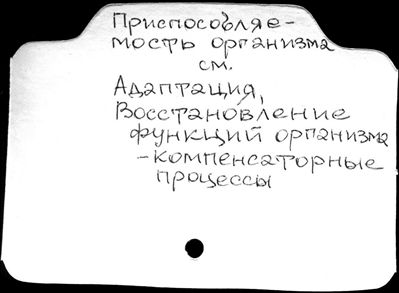 Приспособляе-
мость организма
см.
Адаптация,
Восстановление
функций организма
-компенсаторные
процессы